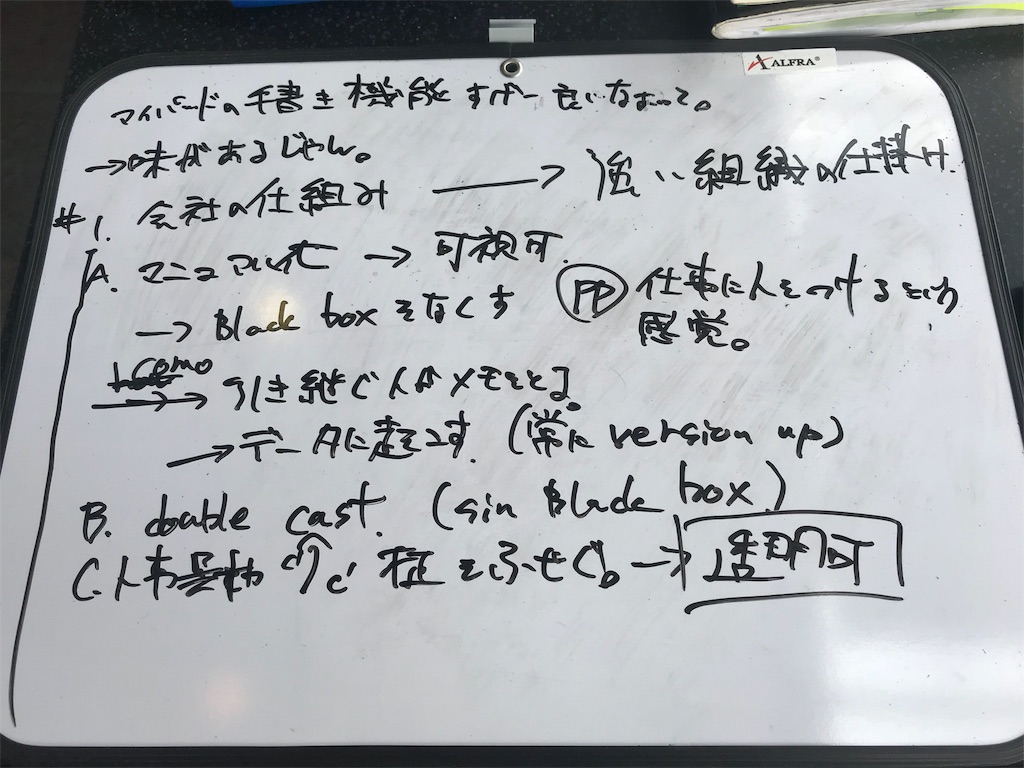 ALFRA®
マイパードの手書き機能すげー良いなぁって。
→味があるじゃん。
#1. 会社の仕組み → 強い組織の仕掛け
A. マニュアル化 → 可視可
→ Black boxをなくす
PP 仕事に人をつけるという
感覚。
como
→ 引き継ぐ人がメモをとる。
→ データに起こす (常に version up)
B. double cast. (sin Black box)
C. 人事異動 症をふせぐ。→ 透明可